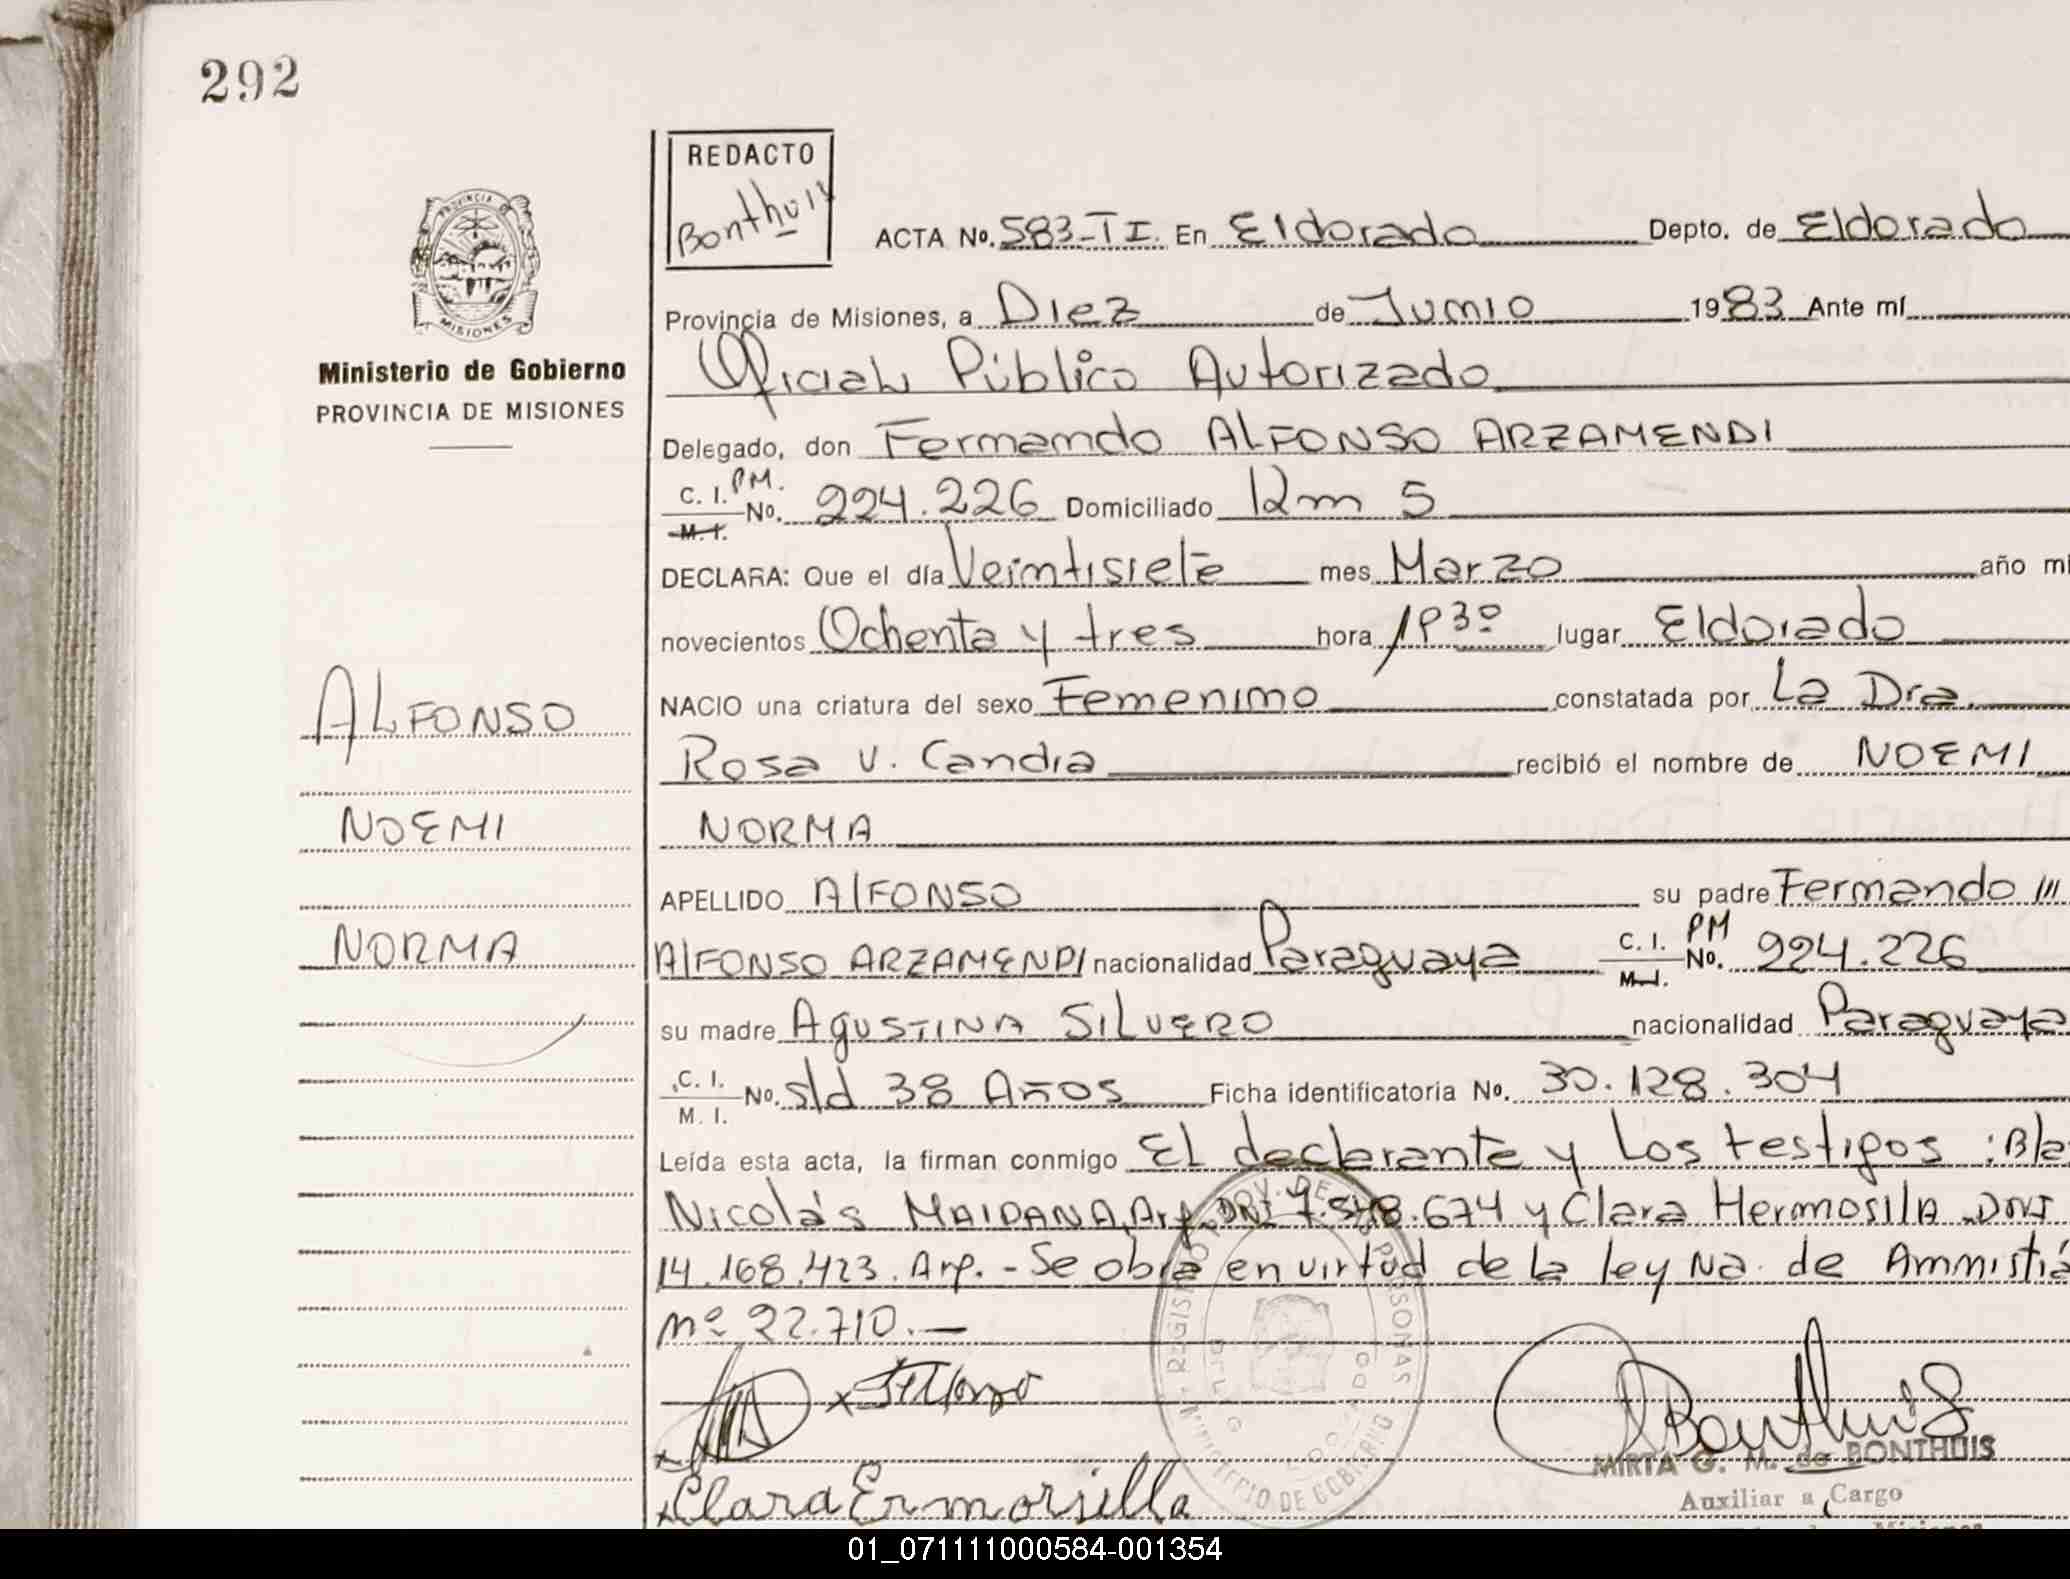 292
REDACTO
Bonthuis
ACTA No. 583-TI. En Eldorado Depto. de Eldorado
PROVINCIA DE
MISIONES
Ministerio de Gobierno
PROVINCIA DE MISIONES
Provincia de Misiones, a Diez de Junio 1983 Ante mí
Oficial Público Autorizado
Delegado, don Fernando ALFONSO ARZAMENDI
C. I. PM.
M. I. No. 224.226 Domiciliado Km 5
DECLARA: Que el día Veintisiete mes Marzo año mi
novecientos Ochenta y tres hora lugar Eldorado
NACIO una criatura del sexo Femenino constatada por La Dra.
ALFONSO
Rosa V. Candia recibió el nombre de NOEMI
NOEMI
NORMA
APELLIDO AlFONSO su padre Fernando
NORMA
AlFONSO ARZAMENDI nacionalidad Paraguaya C. I. PM
M. I. No. 224.226
su madre AgUSTINA SILVERO nacionalidad Paraguaya
C. I.
M. I. No. s/d 38 Años Ficha identificatoria No. 30.128.304
Leída esta acta, la firman conmigo El declarante y Los testigos : Bla
Nicolás MAIDANA, Arg. DNI 7.548.674 y Clara Hermosilla DNI
14.168.423. Arg. - Se obra en virtud de la ley Na. de Amnistia
nº 22.710.—
Clara Ermosilla
Bonthuis
MIRTA G. M. de BONTHUIS
Auxiliar a Cargo
REGISTRO PROV. DE LAS PERSONAS
MINISTERIO DE GOBIERNO
01_071111000584-001354